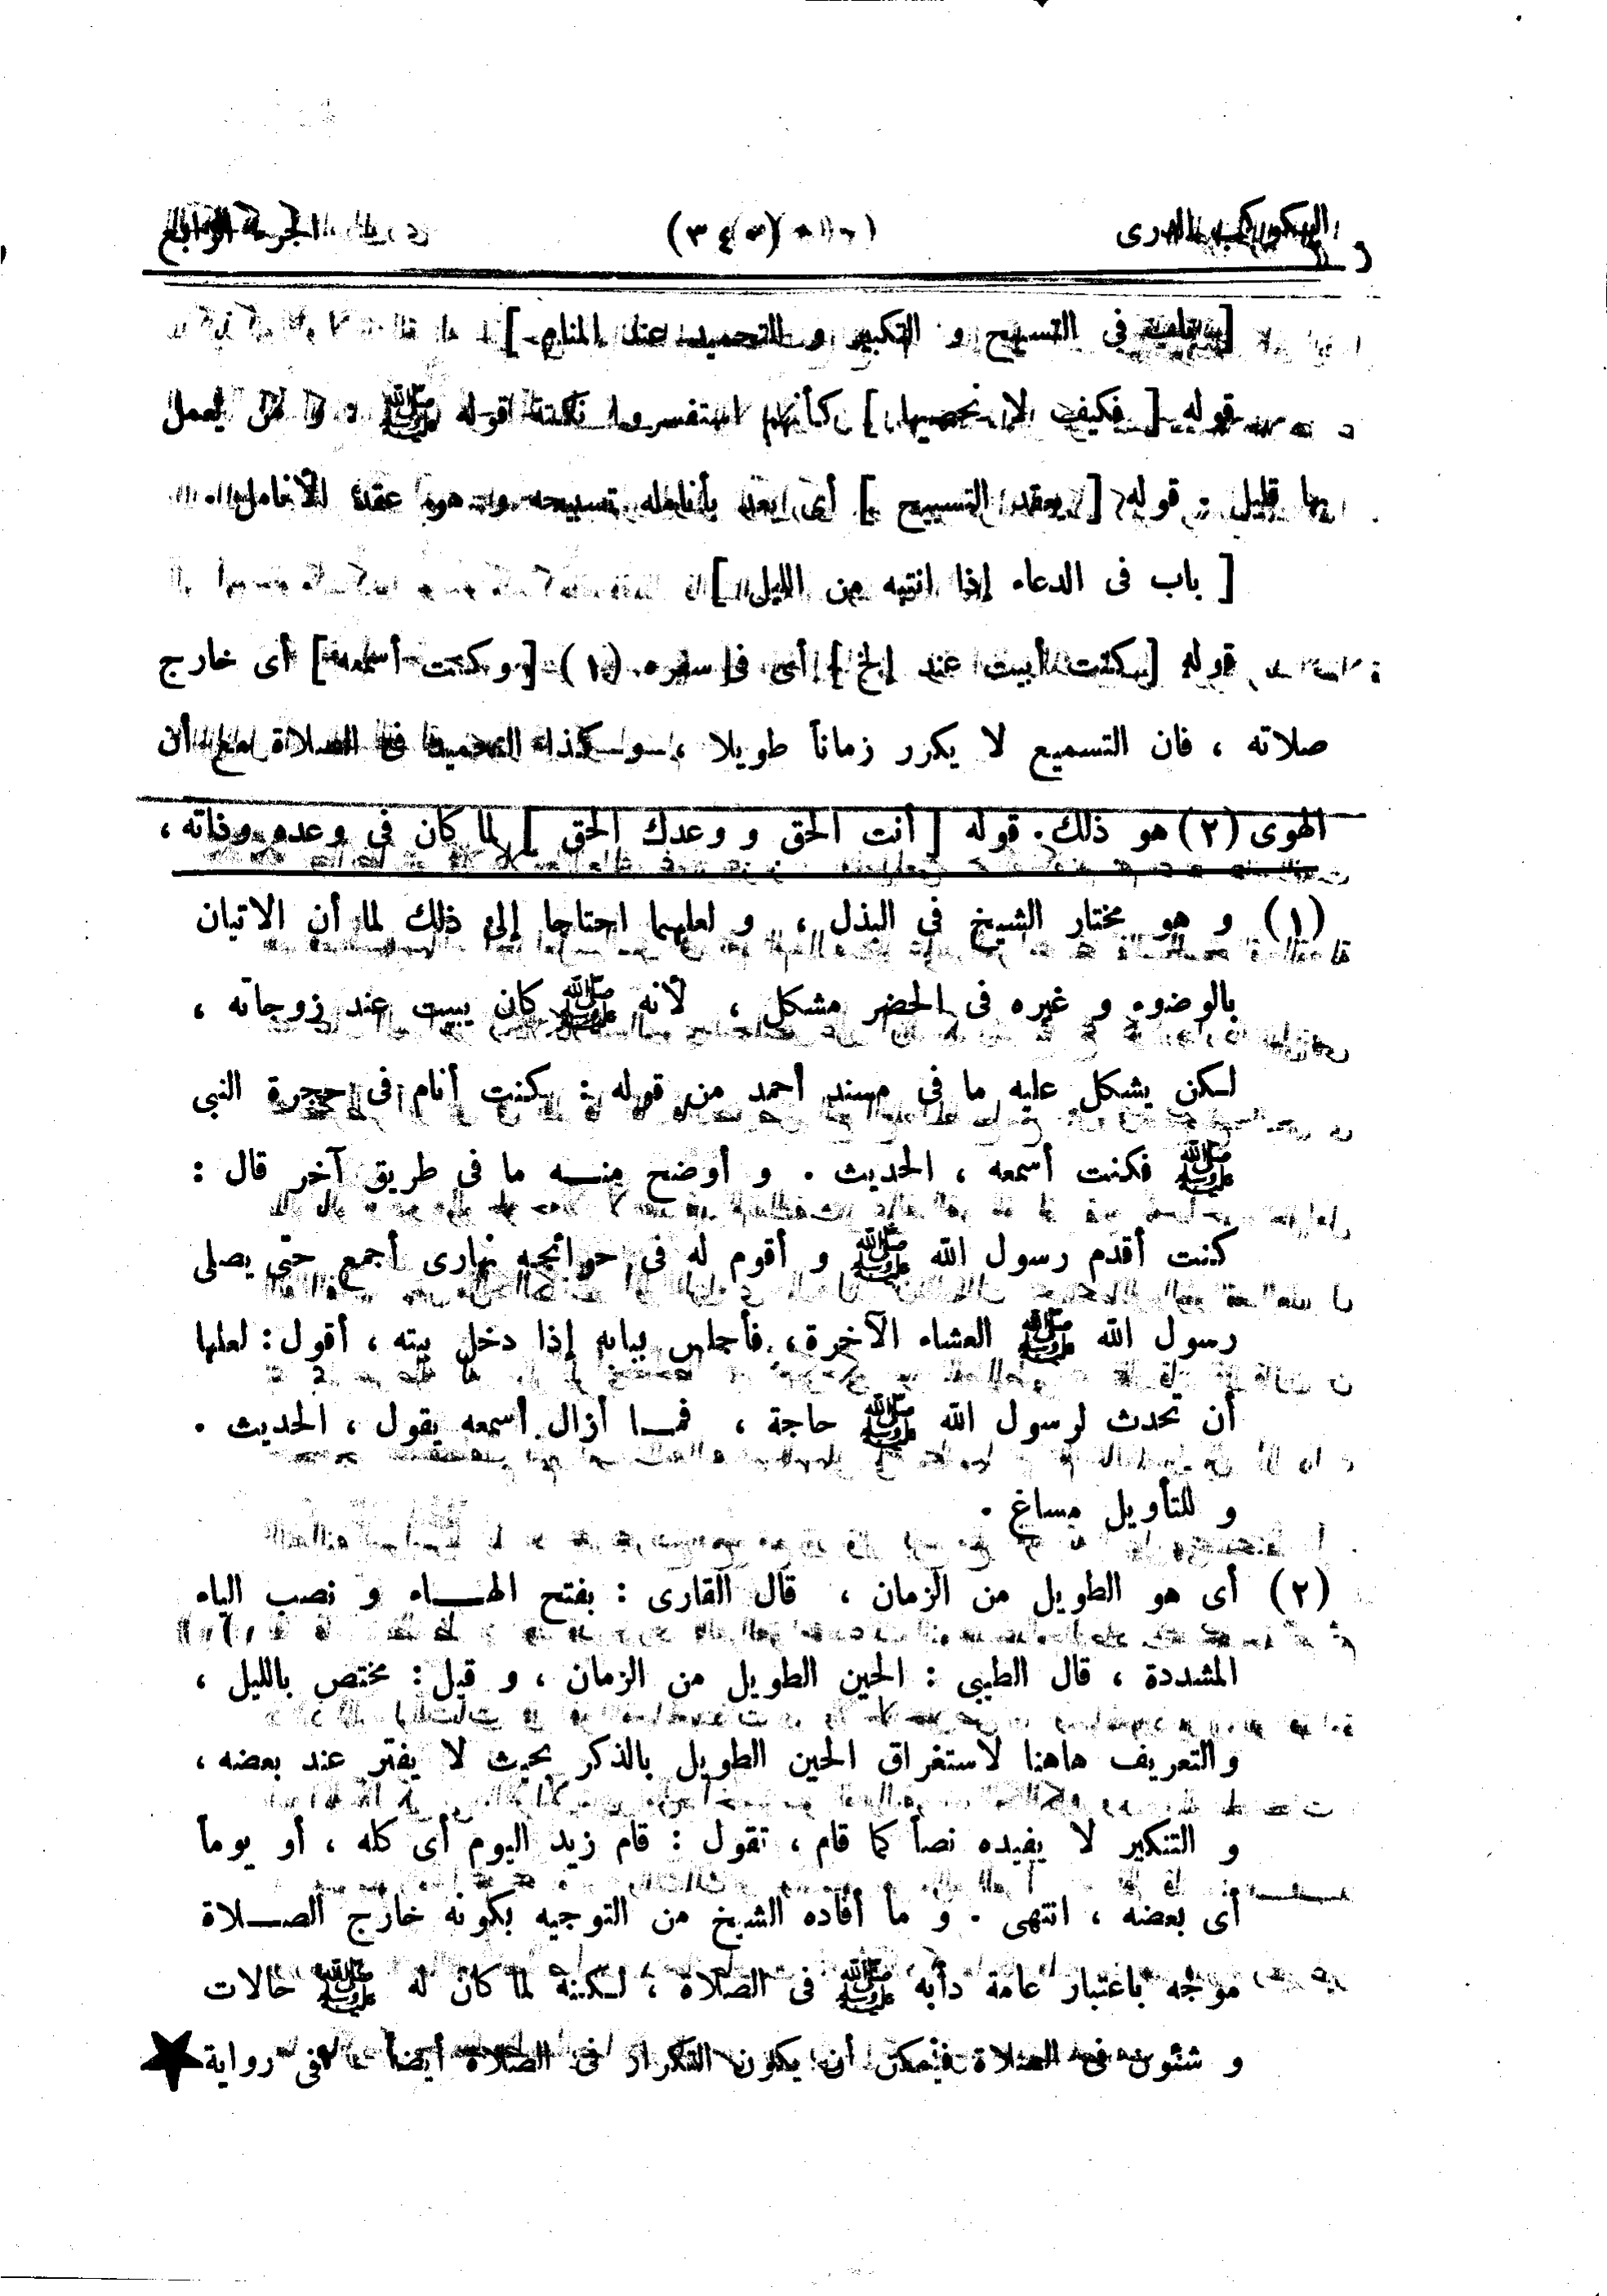 الكوكب الدرى (٣٤٣) الجزء الرابع
[ باب منه فى التسبيح و التكبير و التحميد عند المنام ]
قوله [ فكيف لا نحصيها ] كأنهم استفسروا نكتة قوله ﷺ و من يعمل
بها قليل . قوله [ يعقد التسبيح ] أى يعد بأنامله تسبيحه و هو عقد الأنامل
[ باب فى الدعاء إذا انتبه من الليل ]
قوله [ كنت أبيت عند إلخ ] أى فى سفره (١) [ و كنت أسمعه ] أى خارج
صلاته ، فان التسميع لا يكرر زماناً طويلا ، و كذا التحميد فى الصلاة مع أن
الهوى (٢) هو ذلك . قوله [ أنت الحق و وعدك الحق ] لما كان فى وعده وفاته ،
(١) و هو مختار الشيخ فى البذل ، و لعلهما احتاجا إلى ذلك لما أن الاتيان
بالوضوء و غيره فى الحضر مشكل ، لأنه ﷺ كان يبيت عند زوجاته ،
لكن يشكل عليه ما فى مسند أحمد من قوله : كنت أنام فى حجرة النبى
ﷺ فكنت أسمعه ، الحديث . و أوضح منه ما فى طريق آخر قال :
كنت أقدم رسول الله ﷺ و أقوم له فى حوائجه نهارى أجمع حتى يصلى
رسول الله ﷺ العشاء الآخرة ، فأجلس ببابه إذا دخل بيته ، أقول : لعلها
أن تحدث لرسول الله ﷺ حاجة ، فما أزال أسمعه يقول ، الحديث .
و للتأويل مساغ .
(٢) أى هو الطويل من الزمان ، قال القارى : بفتح الهاء و نصب الياء
المشددة ، قال الطيبى : الحين الطويل من الزمان ، و قيل : مختص بالليل ،
و التعريف هاهنا لاستغراق الحين الطويل بالذكر بحيث لا يفتر عند بعضه ،
و التنكير لا يفيده نصاً كما قام ، تقول : قام زيد اليوم أى كله ، أو يوماً
أى بعضه ، انتهى . و ما أفاده الشيخ من التوجيه بكونه خارج الصلاة
موجه باعتبار عامة دأبه ﷺ فى الصلاة ، لكنه لما كان له ﷺ حالات
و شئون فى الصلاة فيمكن أن يكون التكرار فى الصلاة أيضاً ففى رواية ★